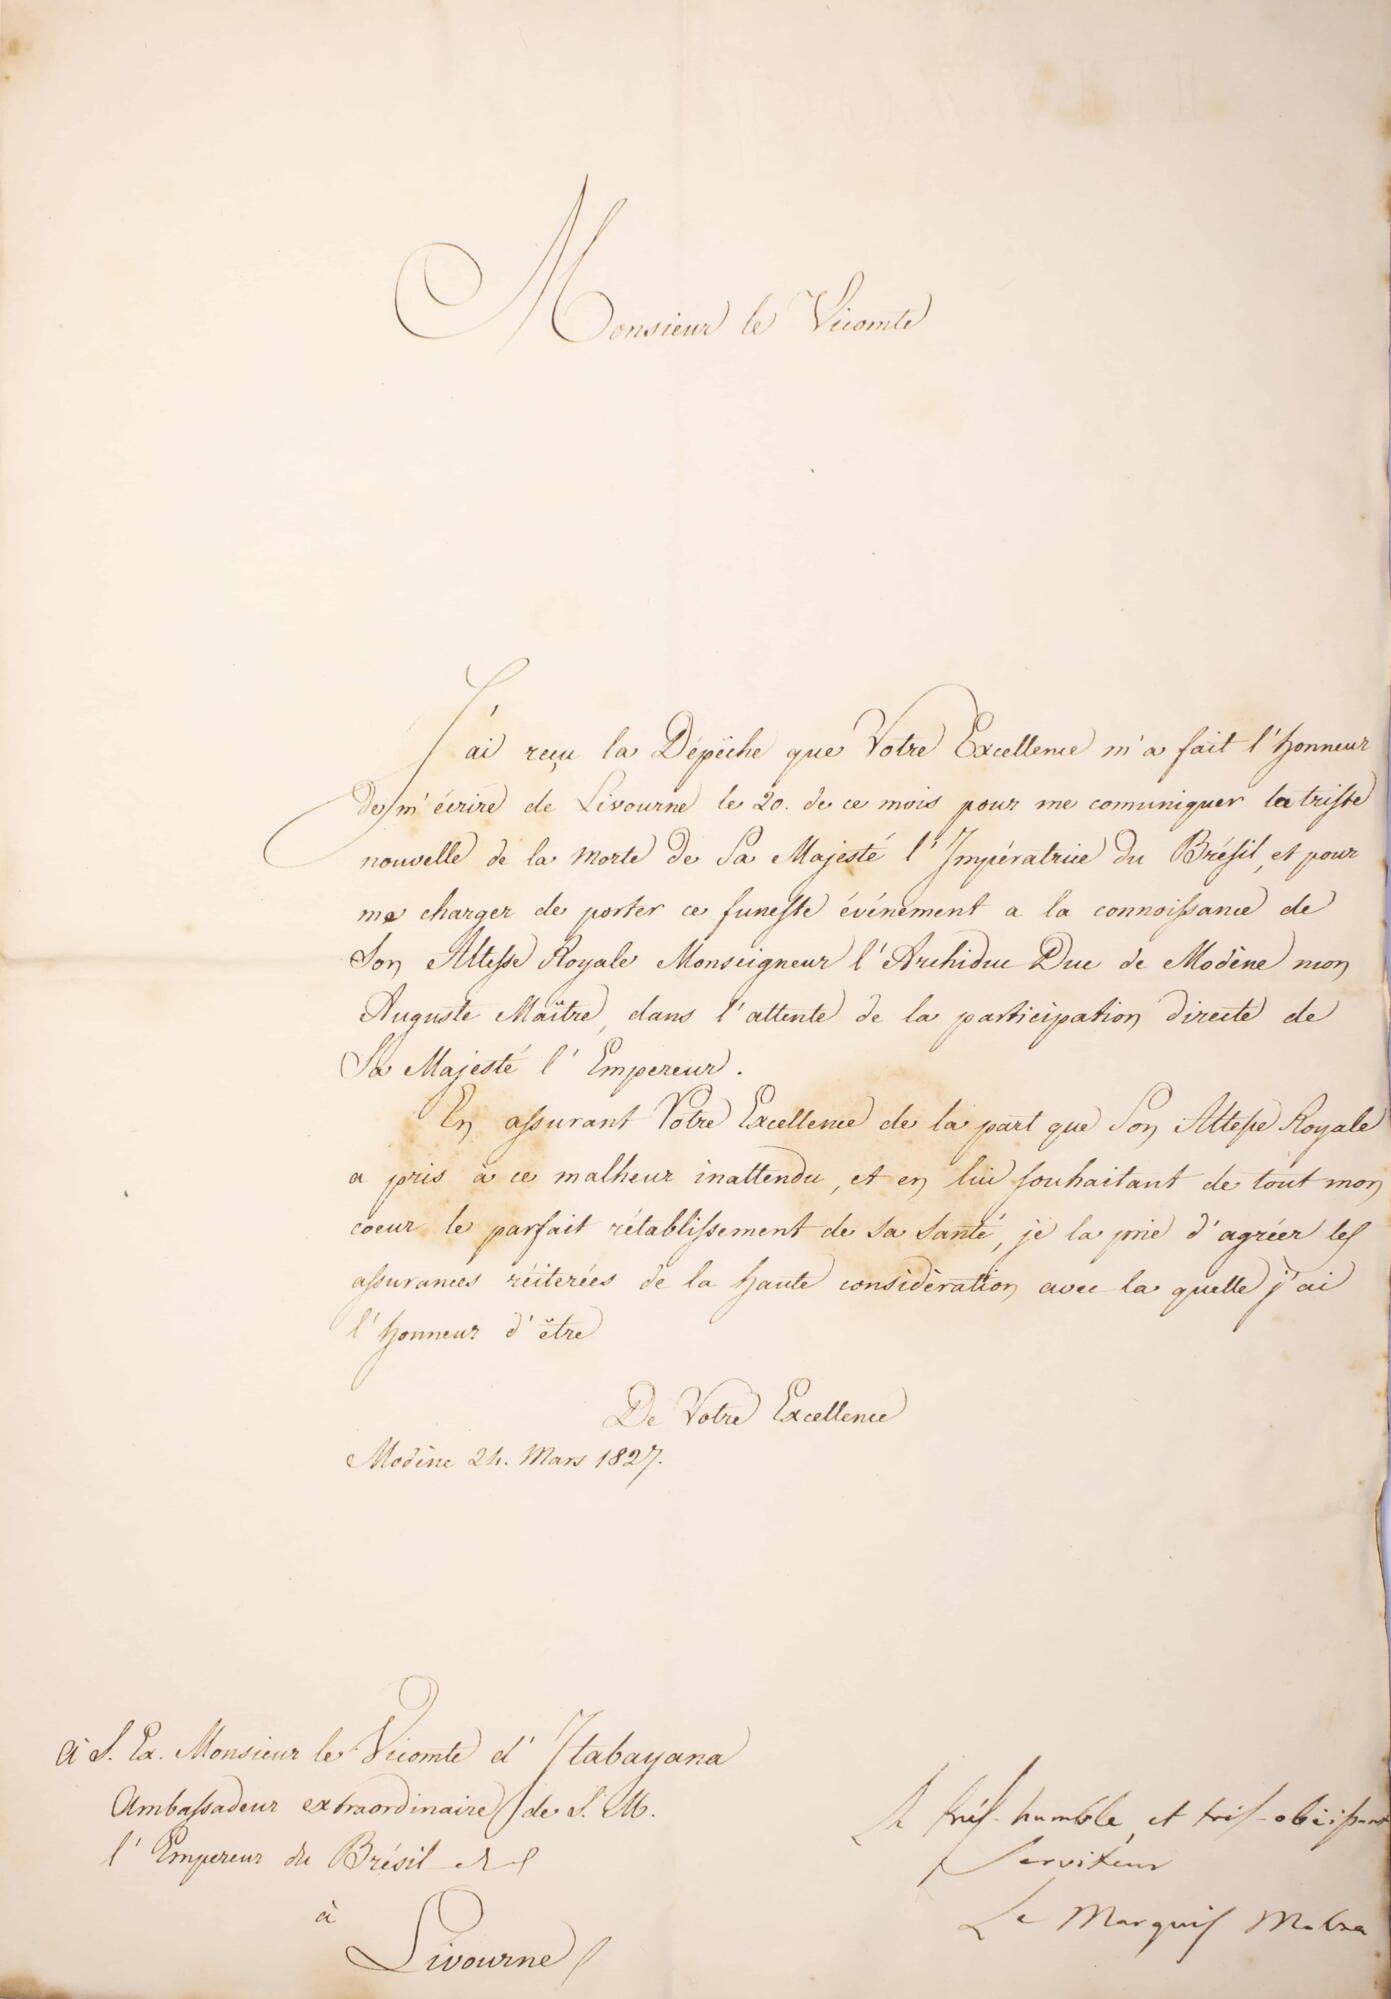 Monsieur le Vicomte
J'ai reçu la Dépêche que Votre Excellence m'a fait l'honneur
de m'écrire de Livourne le 20. de ce mois pour me comuniquer la triste
nouvelle de la morte de Sa Majesté l'Impératrice du Brésil, et pour
me charger de porter ce funeste événement a la connoissance de
Son Altesse Royale Monseigneur l'Archiduc Duc de Modène mon
Auguste Maître, dans l'attente de la participation directe de
Sa Majesté l'Empereur.
En assurant Votre Excellence de la part que Son Altesse Royale
a pris à ce malheur inattendu, et en lui souhaitant de tout mon
coeur le parfait rétablissement de sa santé, je la prie d'agréer les
assurances réiterées de la haute considèration avec la quelle j'ai
l'honneur d'être
De Votre Excellence
Modène 24. Mars 1827.
à S. Ex. Monsieur le Vicomte d'Itabayana
Ambassadeur extraordinaire de S. M.
l'Empereur du Brésil
à
Livourne
Le trés-humble, et trés-obéissant
Serviteur
Le Marquis Molza